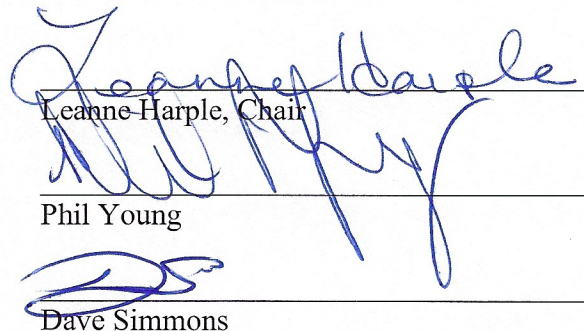 Leanne Harple
Leanne Harple, Chair
Phil Young
Dave Simmons